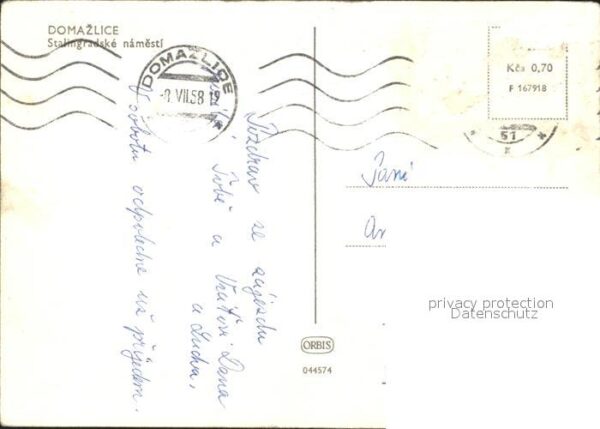 DOMAŽLICE
Stalingradské náměstí
DOMAŽLICE
-8.VII.58-19
Kčs 0,70
F 167918
51
Pozdrav ze zájezdu
Tobě a
Dana
a
V sobotu odpoledne už přijedem.
Paní
privacy protection
Datenschutz
ORBIS
044574